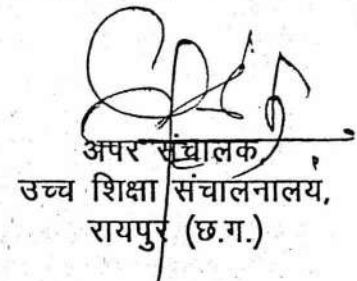 अपर संचालक,
उच्च शिक्षा संचालनालय,
रायपुर (छ.ग.)